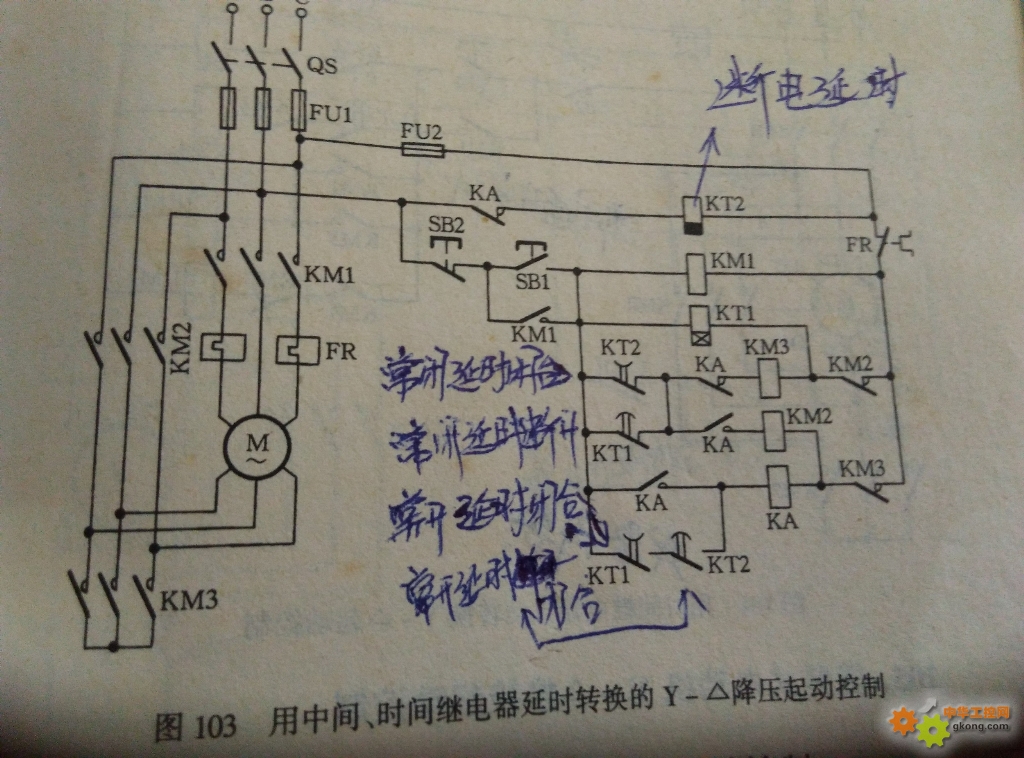 QS
FU1
FU2
断电延时
KA
KT2
SB2
FR
KM1
SB1
KM1
KM1
KT1
KM2
FR
KT2
KA
KM3
KM2
常闭延时闭合
M
~
KT1
KA
KM2
常闭延时断开
KM3
KA
KA
常开延时闭合
KT1
KT2
常开延时
闭合
KM3
图 103 用中间、时间继电器延时转换的 Y-△降压起动控制
中华工控网
gkong.com